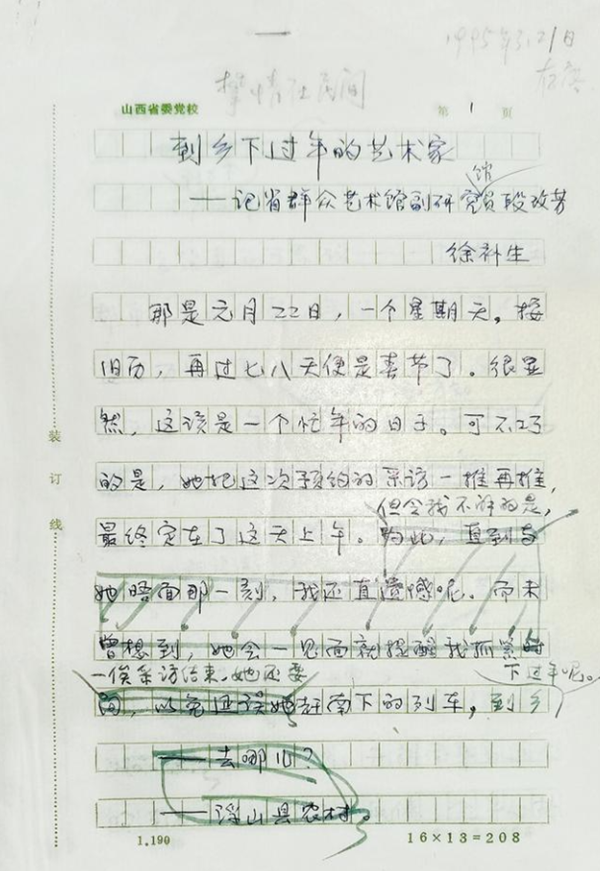 1995.3.21日
情注民间
山西省委党校 第1页
到乡下过年的艺术家
馆
——记省群众艺术馆副研究员段改芳
徐补生
那是元月22日，一个星期天。按
旧历，再过七八天便是春节了。很显
然，这该是一个忙年的日子。可不巧
的是，她把这次预约的采访一推再推，
但令我不解的是，
最终定在了这天上午。为此，直到与
她晤面那一刻，我还直遗憾呢。而未
曾想到，她会一见面就提醒我抓紧时
一俟采访结束，她还要
下过年呢。
间，以免延误她赶南下的列车，到乡
——去哪儿？
——浮山县农村。
装
订
线
1.190 16×13=208